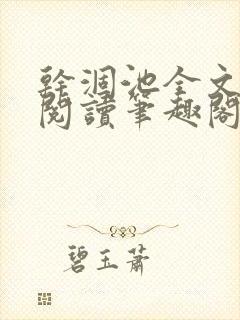 幹涸池全文
閱讀筆趣閣
碧玉蕭